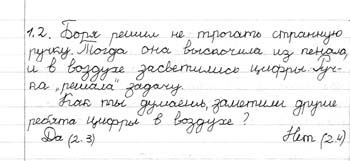 1.2. Боря решил не трогать странную
ручку. Тогда она выскочила из пенала,
и в воздухе засветились цифры. Руч-
ка „решала" задачу.
Как ты думаешь, заметили другие
ребята цифры в воздухе?
Да (2.3) Нет (2.4)